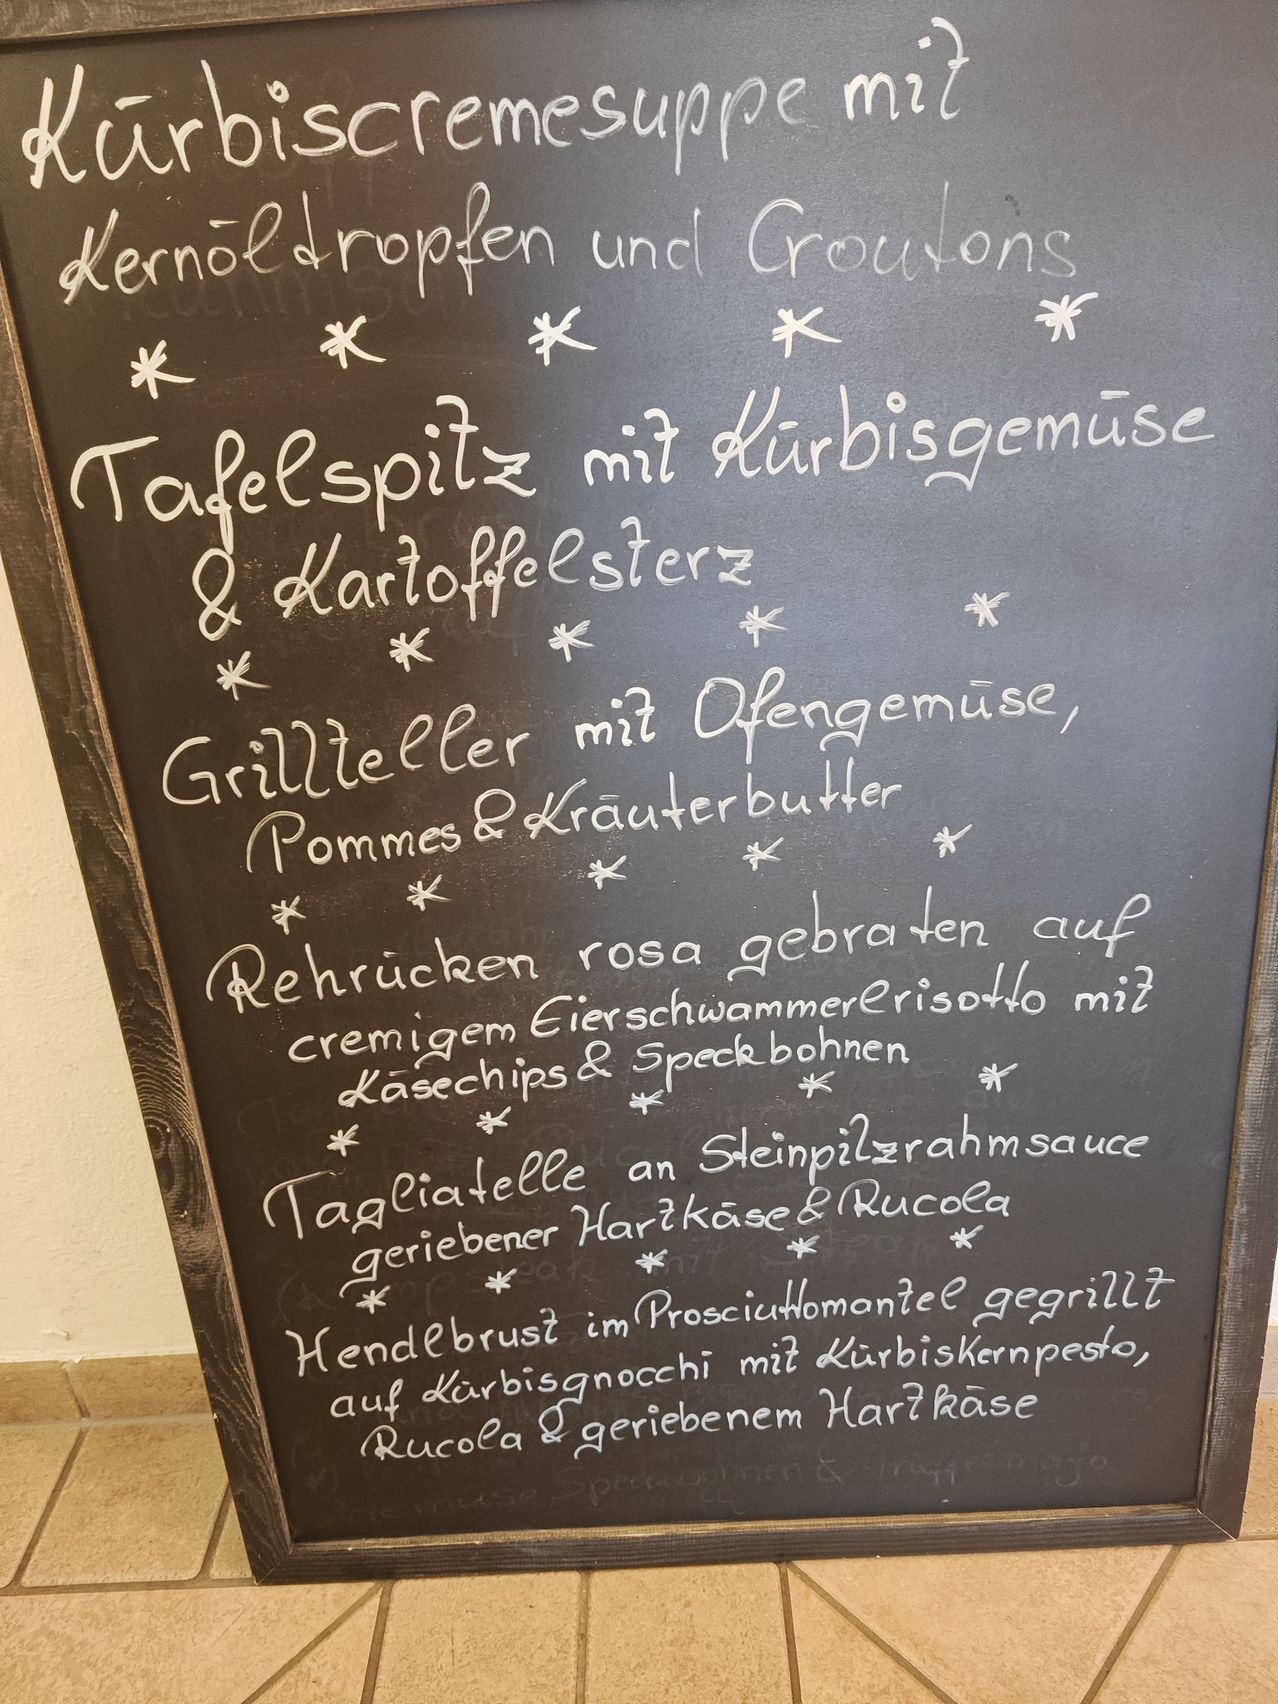 Kürbiscremesuppe mit
Kernöltropfen und Croutons
* * * * *
Tafelspitz mit Kürbisgemüse
& Kartoffelsterz
* * * * *
Grillteller mit Ofengemüse,
Pommes & Kräuterbutter
* * * * *
Rehrücken rosa gebraten auf
cremigem Eierschwammerlrisotto mit
Käsechips & Speckbohnen
* * * * *
Tagliatelle an Steinpilzrahmsauce
geriebener Hartkäse & Rucola
* * * * *
Hendlbrust im Prosciuttomantel gegrillt
auf Kürbisgnocchi mit Kürbiskernpesto,
Rucola & geriebenem Hartkäse